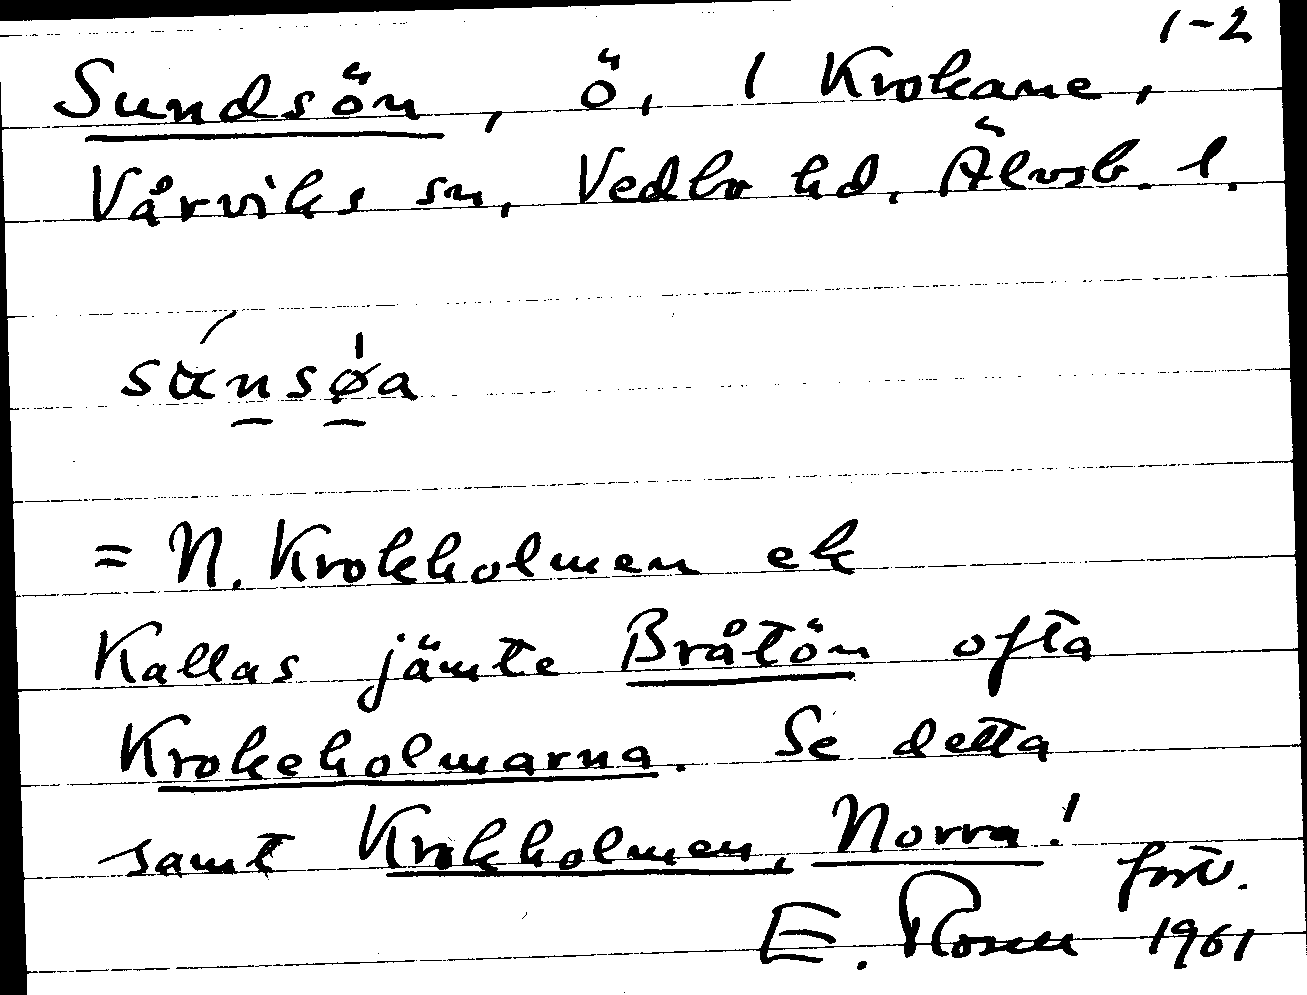 1-2
Sundsön, ö, i Krokane,
Vårviks sn, Vedbo hd, Älvsb. l.
= N. Krokholmen ek
Kallas jämte Bråtön ofta
Krokeholmarna. Se detta
samt Krokholmen, Norra!
fort.
E. Rosen 1961